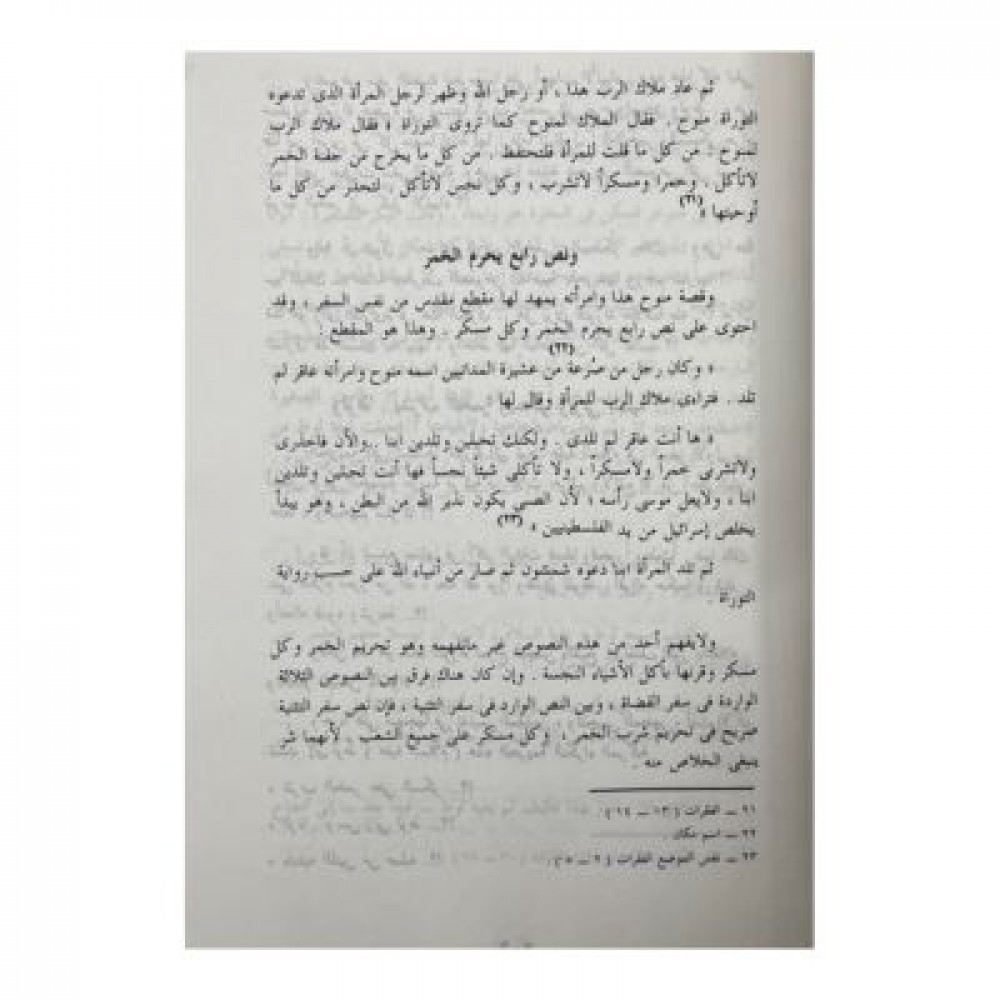 ثم عاد ملاك الرب هذا ، أو رجل الله وظهر لرجل المرأة الذى تدعوه
التوراة منوح . فقال الملاك لمنوح كما تروى التوراة « فقال ملاك الرب
لمنوح : من كل ما قلت للمرأة فلتحتفظ . من كل ما يخرج من جفنة الخمر
لاتأكل . وخمرا ومسكراً لاتشرب ، وكل نجس لاتأكل . لتحذر من كل ما
أوصيتها »(٢١)
ونص رابع يحرم الخمر
وقصة منوح هذا وامرأته يمهد لها مقطع مقدس من نفس السفر ، وقد
احتوى على نص رابع يحرم الخمر وكل مسكر . وهذا هو المقطع :
« وكان رجل من صُرعة(٢٢) من عشيرة الدانيين اسمه منوح وامرأته عاقر لم
تلد . فتراءى ملاك الرب للمرأة وقال لها :
« ها أنت عاقر لم تلدى . ولكنك تحبلين وتلدين ابنا ..والآن فاحذرى
ولاتشربى خمراً ولامسكراً ، ولا تأكلى شيئاً نجساً فها أنت تحبلين وتلدين
ابنا ، ولايعل موسى رأسه ؛ لأن الصبى يكون نذير الله من البطن ، وهو يبدأ
يخلص إسرائيل من يد الفلسطينيين »(٢٣)
ثم تلد المرأة ابنا دعوه شمشون ثم صار من أنبياء الله على حسب رواية
التوراة .
ولايفهم أحد من هذه النصوص غير مانفهمه وهو تحريم الخمر وكل
مسكر وقرنها بأكل الأشياء النجسة . وإن كان هناك فرق بين النصوص الثلاثة
الواردة فى سفر القضاة ، وبين النص الوارد فى سفر التثنية ، فإن نص سفر التثنية
صريح فى تحريم شرب الخمر ، وكل مسكر على جميع الشعب . لأنهما شر
ينبغى الخلاص منه .
٢١ ــ الفقرات ( ١٣ ــ ١٤ ) .
٢٢ ــ اسم مكان .
٢٣ ــ نفس الموضع الفقرات ( ٢ ــ ٥ ) .